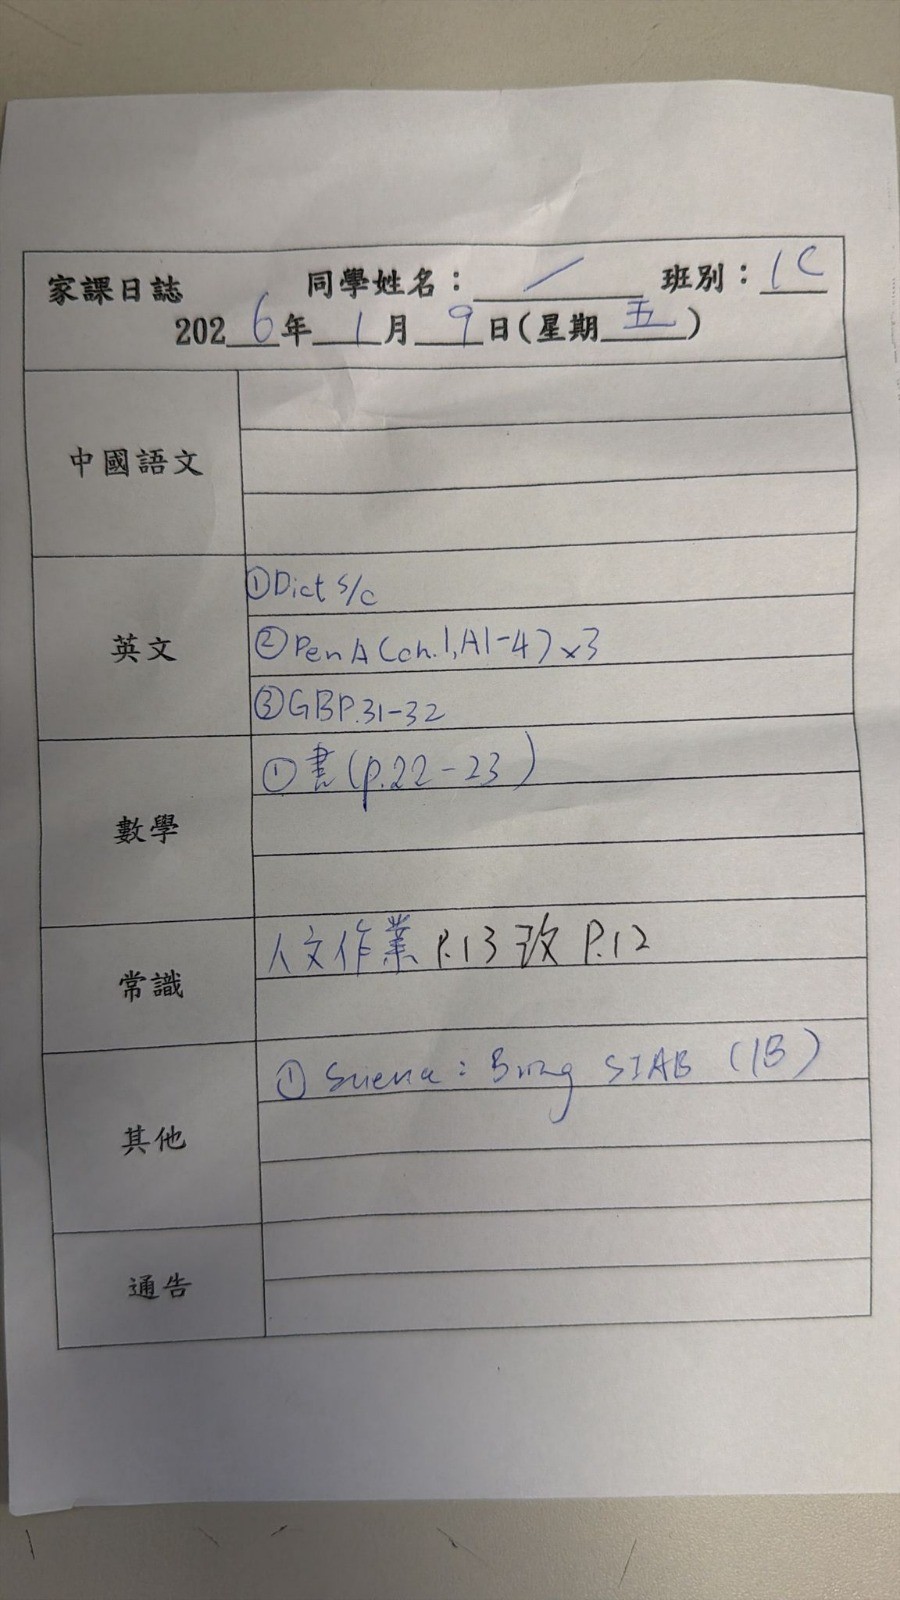 家課日誌 同學姓名：／ 班別：1C
2026年1月9日(星期五)
中國語文
英文
①Dict s/c
②Pen A (ch.1, A1-4) x3
③GBP.31-32
數學
①書(p.22-23)
常識
人文作業 P.13 改 P.12
其他
① Science : Bring SIAB (1B)
通告